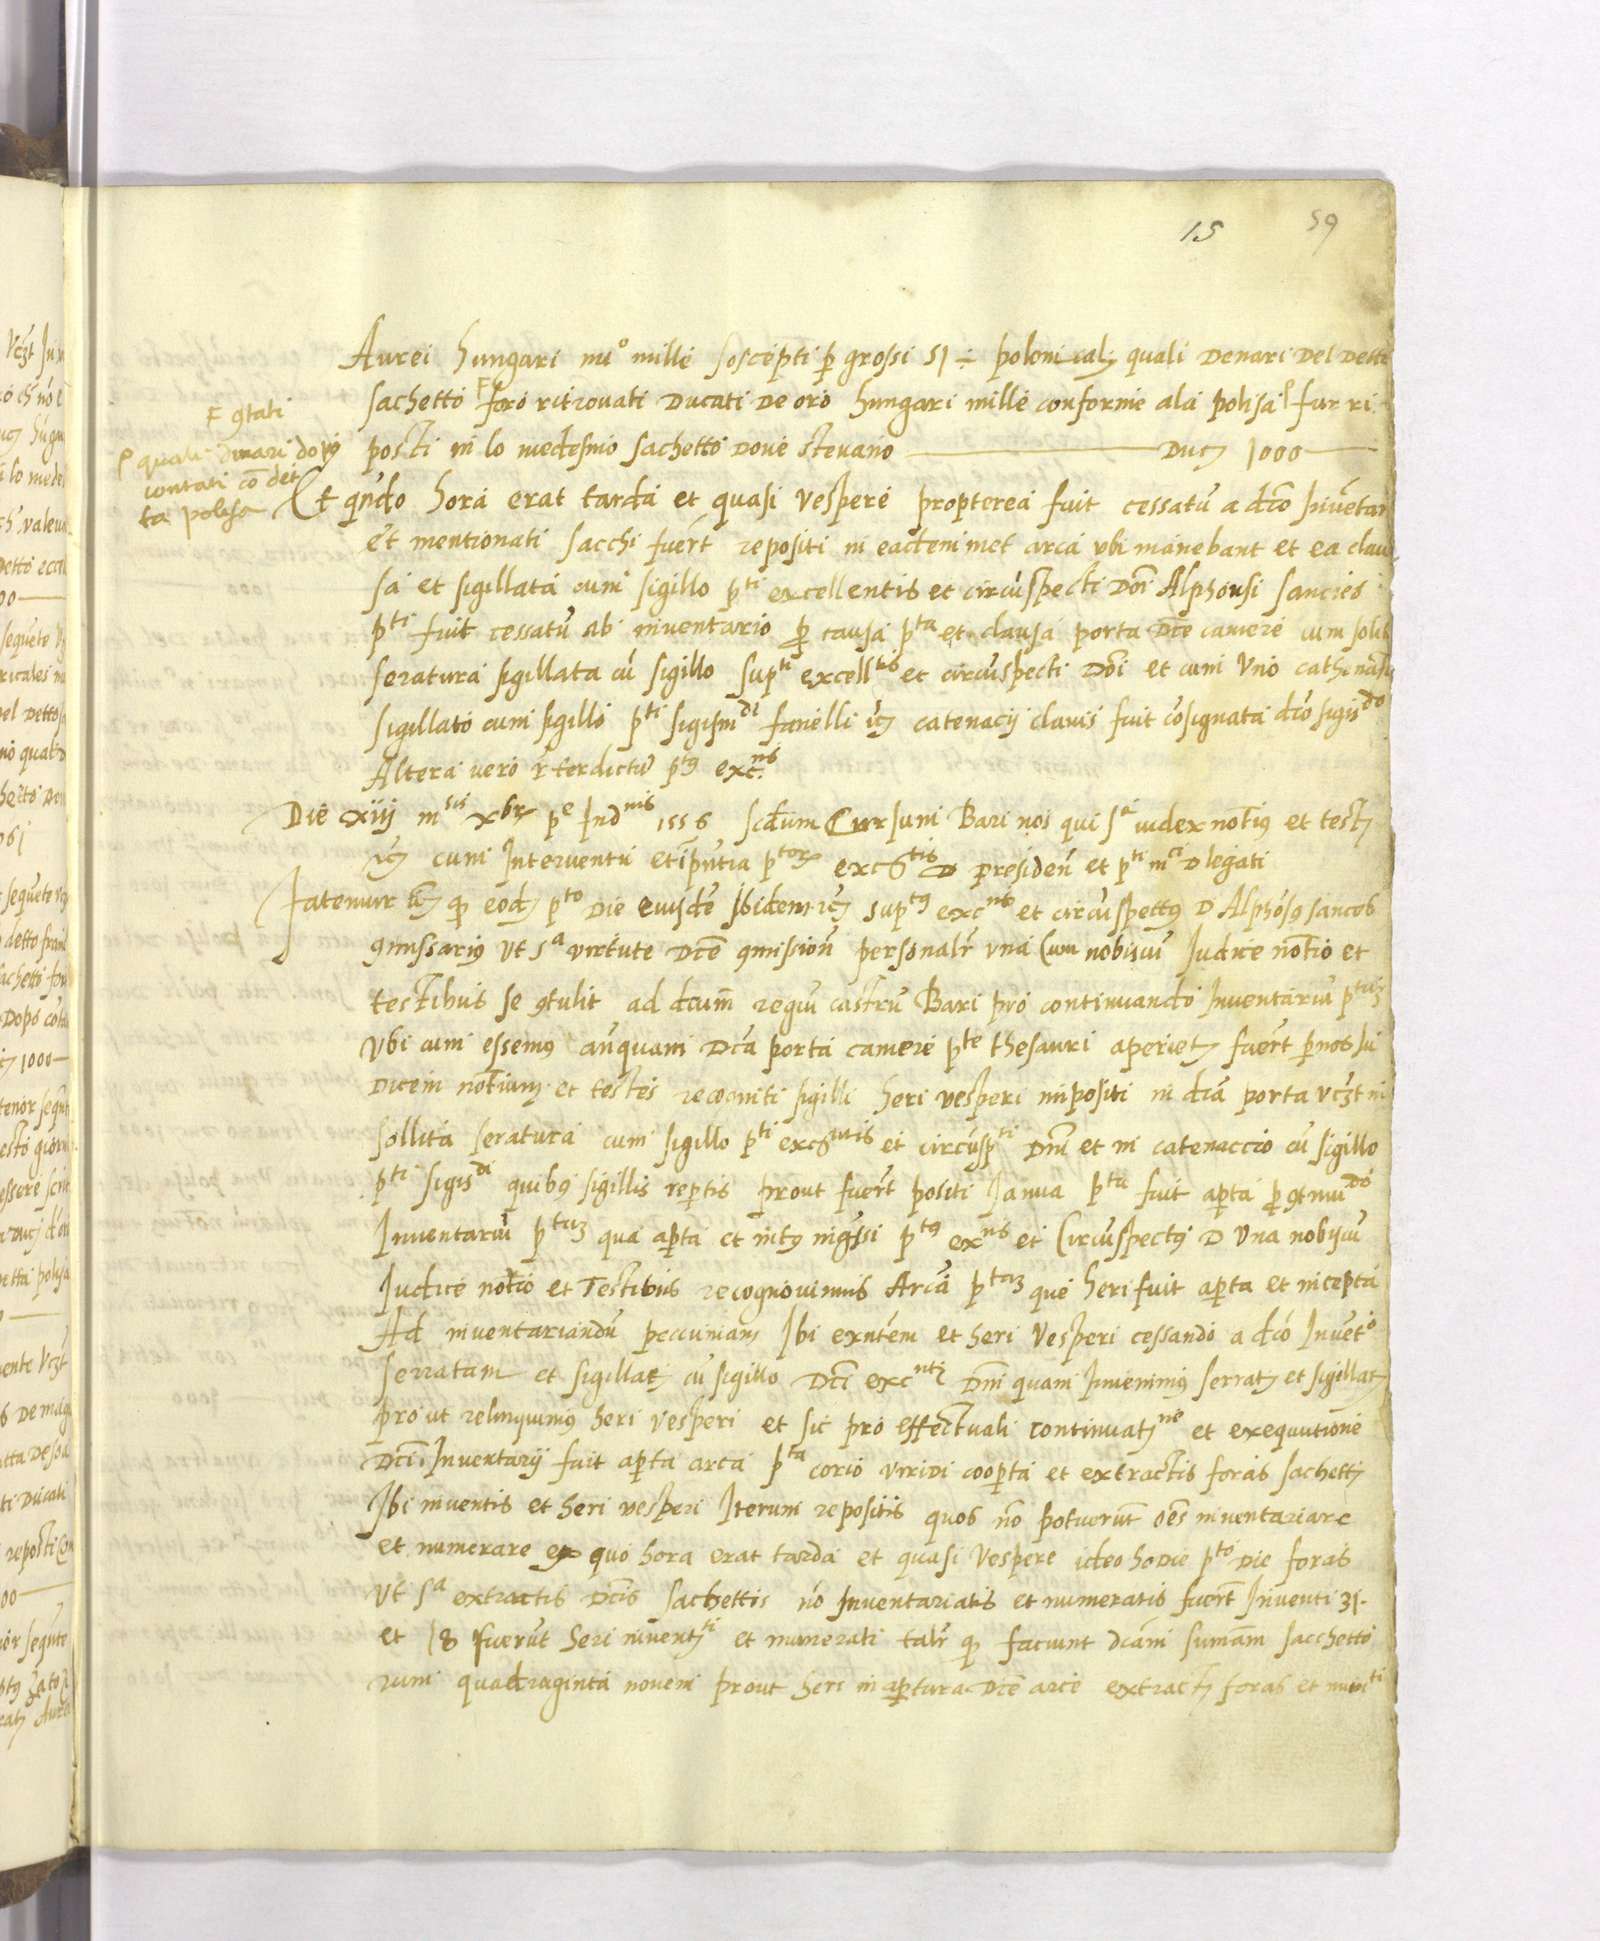 15 59
Aurei hungari nuº mille soscepti p grossi 51 ÷ polonicalȝ quali denari del detto
sachetto foro ritrovati Ducati de oro hungari mille conforme ala polisa fur ri
F 9tati
quali denari dopo
contati cõ det
ta polisa
posti in lo medesmo sachetto dove stevano — Ducȝ 1000 —
Et qñdo hora erat tarda et quasi vespere propterea fuit cessatũ a dcõ Inventar
et mentionati sacchi fuert̃ repositi in eademmet arca ubi manebant et ea clau
sa et sigillata cum sigillo pti excellentis et circũspecti Doñi Alphonsi sancies
pti fuit cessatũ ab inventario p causa pta et clausa porta Dcẽ camere cum solit
seratura sigillata cũ sigillo supti excelltis et circũspecti Doñi et cum uno cathenac
sigillato cum sigillo pti sigismdi fanelli catenacij clavis fuit cõsignata dcõ sigisdo
Altera vero ptꝰ excns
Die xiij msis xbrȝ pe Indnis 1556 Bari nos qui sa iudex notiꝰ et testȝ
cum Interventu et ip̃ntia ptorȝ D presideñ et pti mci D legati
fatemur qȝ eodȝ pto die euisdẽ ibidem suptꝰ excns et circũspettꝰ D Alphõsꝰ sancos
9missariꝰ ut sa virtute Dcẽ 9missioñ personalr̃ una cum nobiscũ Iudice notio et
testibus se 9tulit ad dcum̃ regiũ castrũ Bari pro continuando Inventariũ ptuȝ
Ubi cum essemꝰ añquam Dcã porta camere pte thesauri aperietȝ fuert̃ p nos Iu
dicem notium et testes recogniti sigilli heri vesperi impositi in dcã porta vcȝt in
sollita seratura cum sigillo pti et circũspti Dñi et in catenaccio cũ sigillo
pti sigisdi quibꝰ sigillis reptis prout fuert̃ positi Ianua pta fuit apta p 9tinuãdo
Inventariũ ptuȝ qua apta et intꝰ ingr̃ssi ptꝰ exns et Circũspectꝰ D una nobiscũ
Iudice notio et Testibus recognovimus Arcã ptaȝ que heri fuit apta et incepta
Ad inventariandũ peccuniam Ibi exñtem et heri Vesperi cessando a dcõ Invẽto
serratam et sigillatȝ cũ sigillo Dcĩ excntis Dñi quam Invenimꝰ serratȝ et sigillatȝ
pro ut relinquimꝰ heri vesperi et sic pro effectuali continuatȝne et exequutione
Dcĩ Inventarij fuit apta arca pta corio viridi coopta et extractis foras sachettȝ
Ibi inventis et heri vesperi Iterum repositis quos nõ potuerũt oẽs inventariare
et numerare ex quo hora erat tarda et quasi Vespere ideo hodie pto die foras
ut sa extractis Dcĩs sachettis nõ Inventariatis et numeratis fuert̃ Inventi 31.
et 18 fuerũt heri inventi et numerati talr̃ qȝ faciunt dcãm sumam̃ sacchetto
rum quadraginta novem prout heri in aptura Dcẽ arce extractȝ foras et